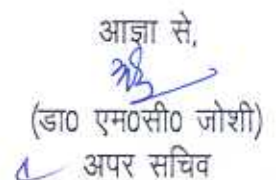 आज्ञा से,
(डा0 एम0सी0 जोशी)
अपर सचिव